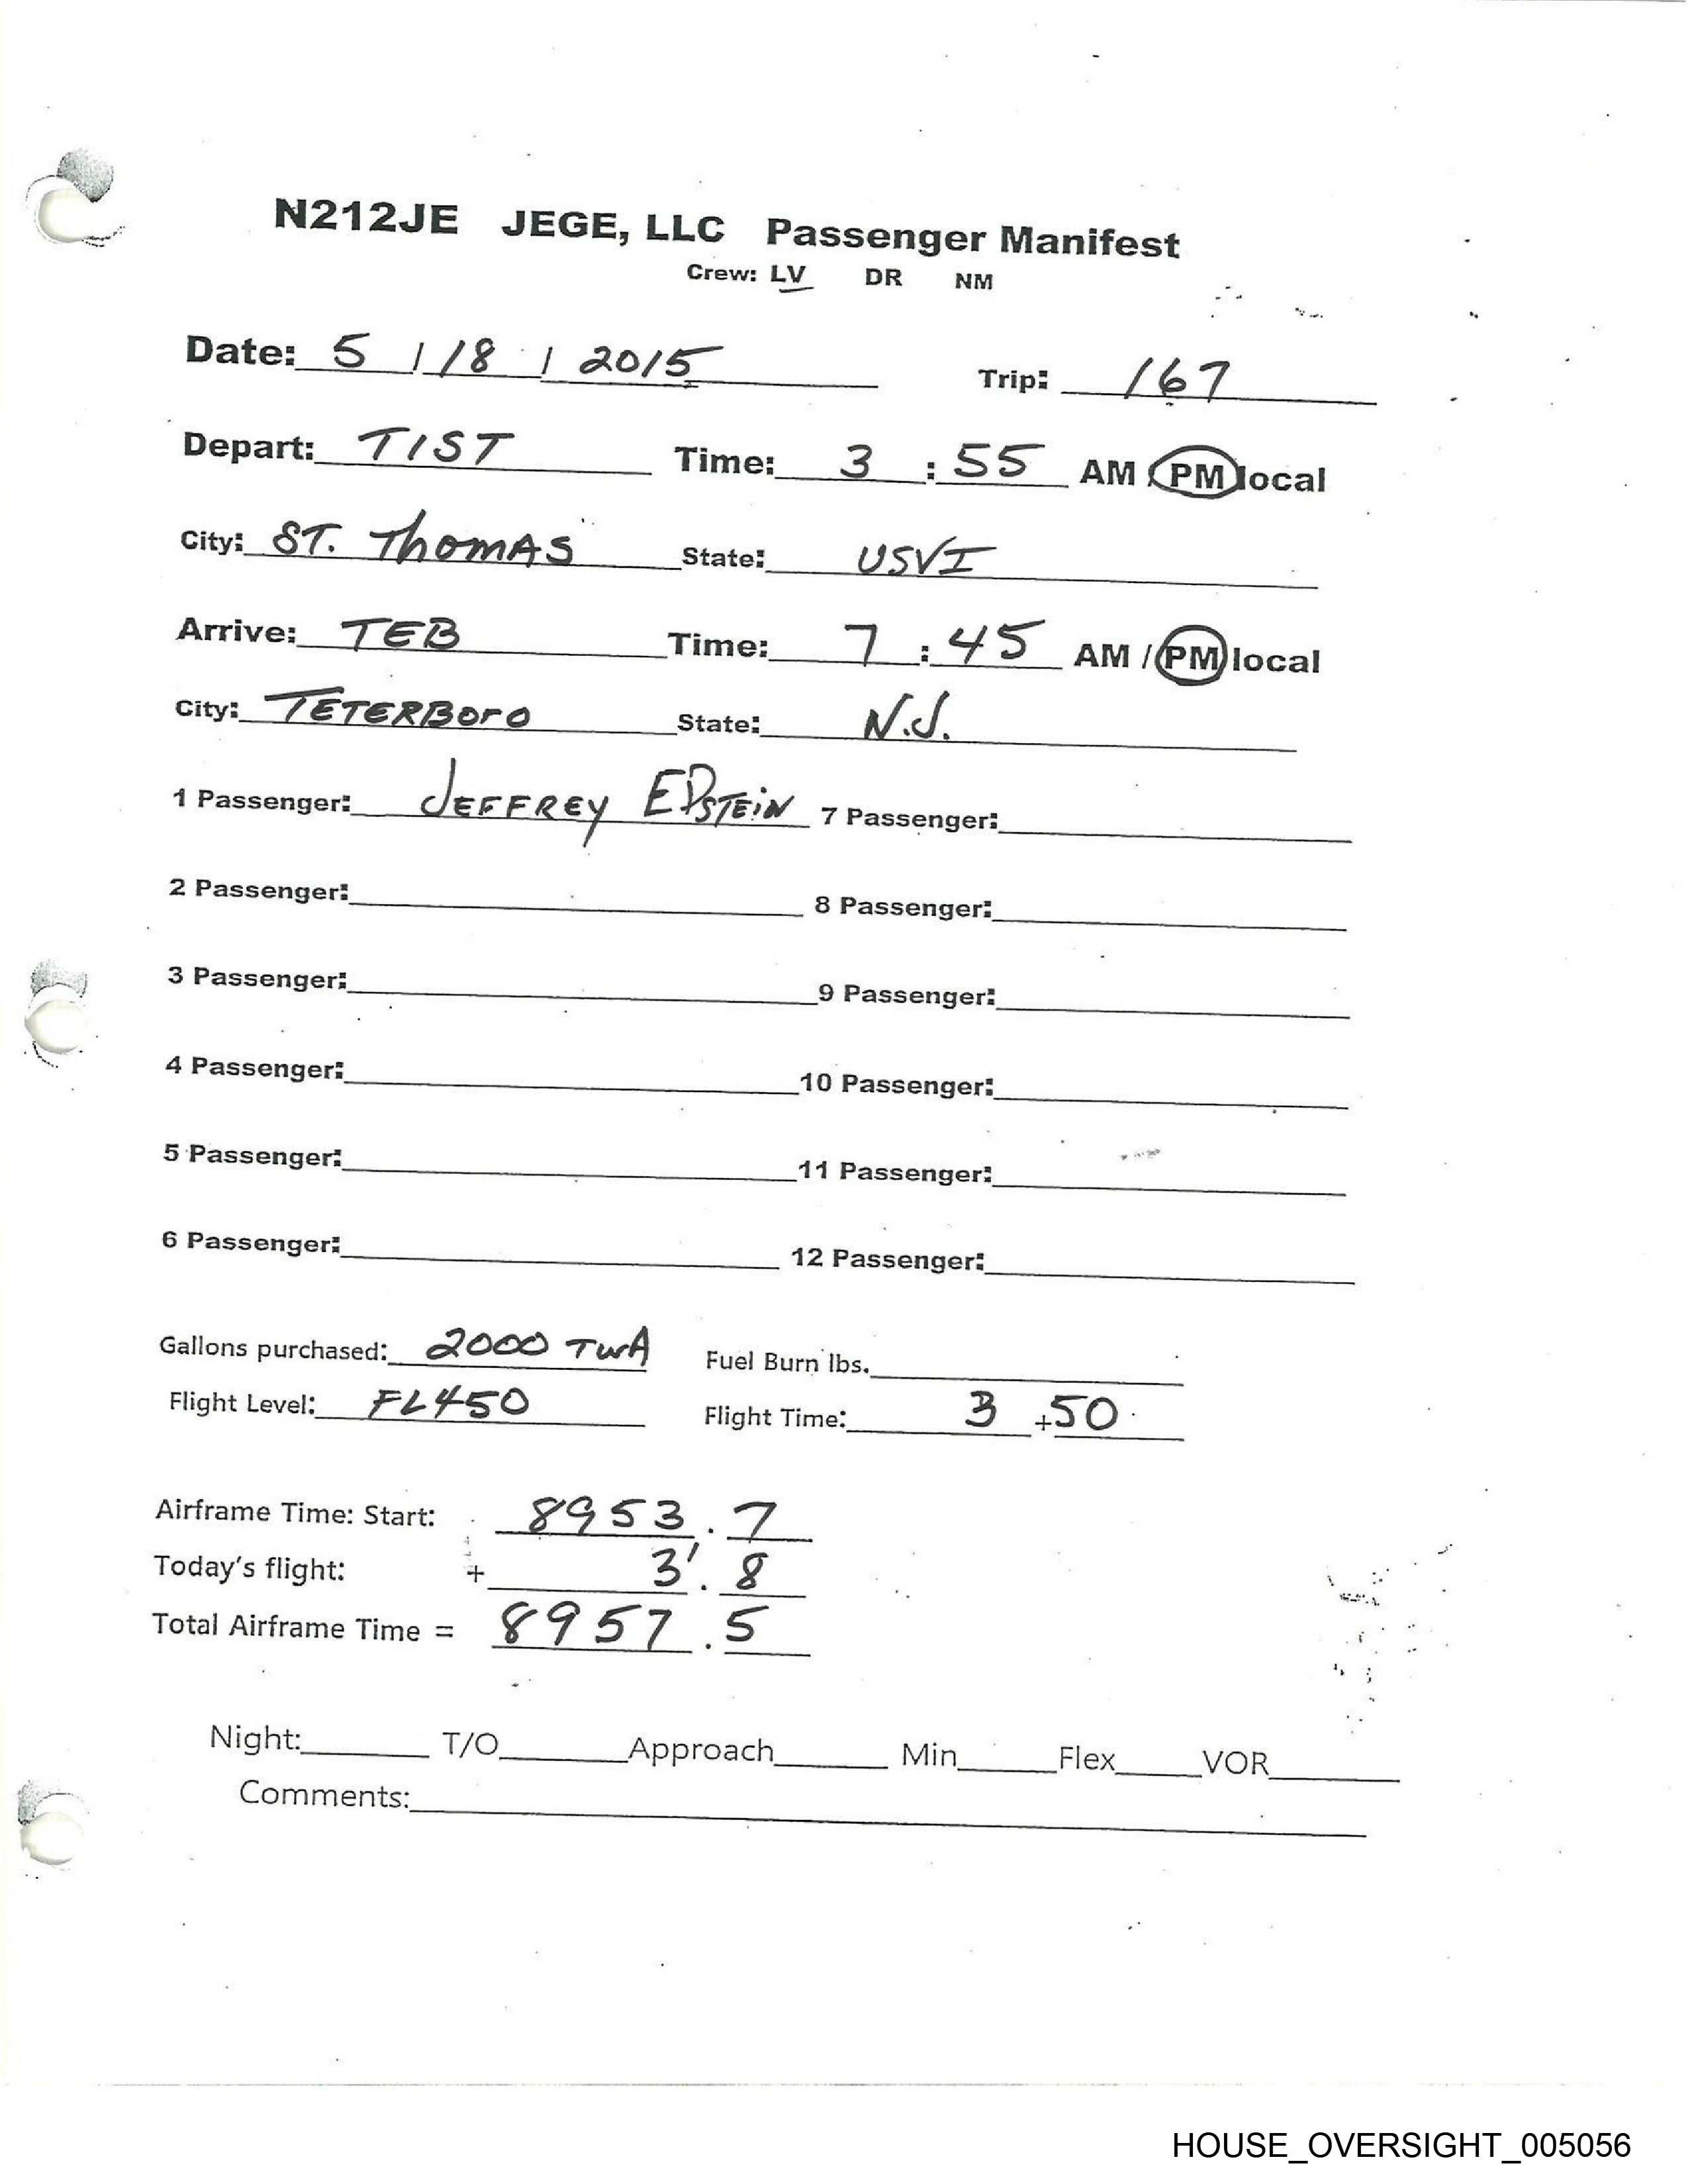 N212JE JEGE, LLC Passenger Manifest
Crew: LV DR NM
Date: 5 / 18 / 2015 Trip: 167
Depart: TIST Time: 3 : 55 AM / PM local
City: ST. ThomAS State: USVI
Arrive: TEB Time: 7 : 45 AM / PM local
City: TETERBoro State: N.J.
1 Passenger: JEFFREY EPSTEiN 7 Passenger:
2 Passenger: 8 Passenger:
3 Passenger: 9 Passenger:
4 Passenger: 10 Passenger:
5 Passenger: 11 Passenger:
6 Passenger: 12 Passenger:
Gallons purchased: 2000 TWA Fuel Burn lbs.
Flight Level: FL450 Flight Time: 3 + 50
Airframe Time: Start: 8953 . 7
Today's flight: + 3 . 8
Total Airframe Time = 8957 . 5
Night: T/O Approach Min Flex VOR
Comments:
HOUSE_OVERSIGHT_005056